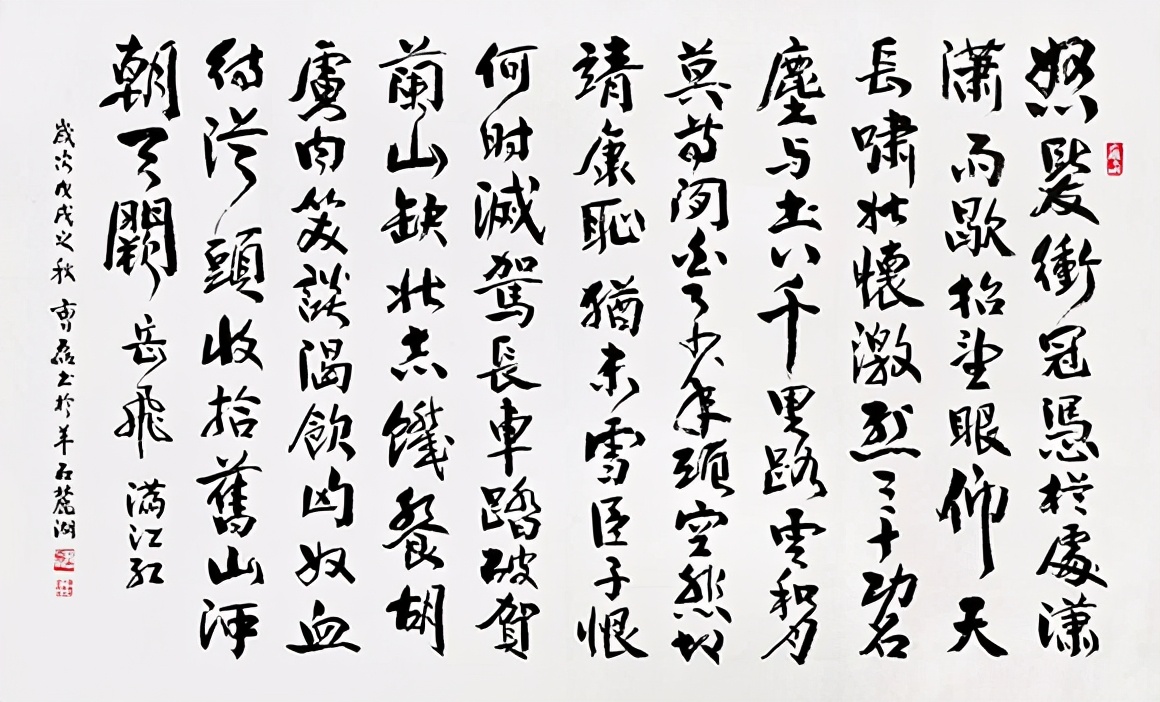 怒髮衝冠憑栏處潇
潇雨歇抬望眼仰天
長嘯壮懷激烈三十功名
塵与土八千里路雲和月
莫等闲白了少年頭空悲切
靖康恥猶未雪臣子恨
何时滅駕長車踏破賀
蘭山缺壮志饑餐胡
虜肉笑談渴飲匈奴血
待從頭收拾舊山河
朝天闕 岳飛 满江红
歲次戊戌之秋 曹磊书於羊石麓湖